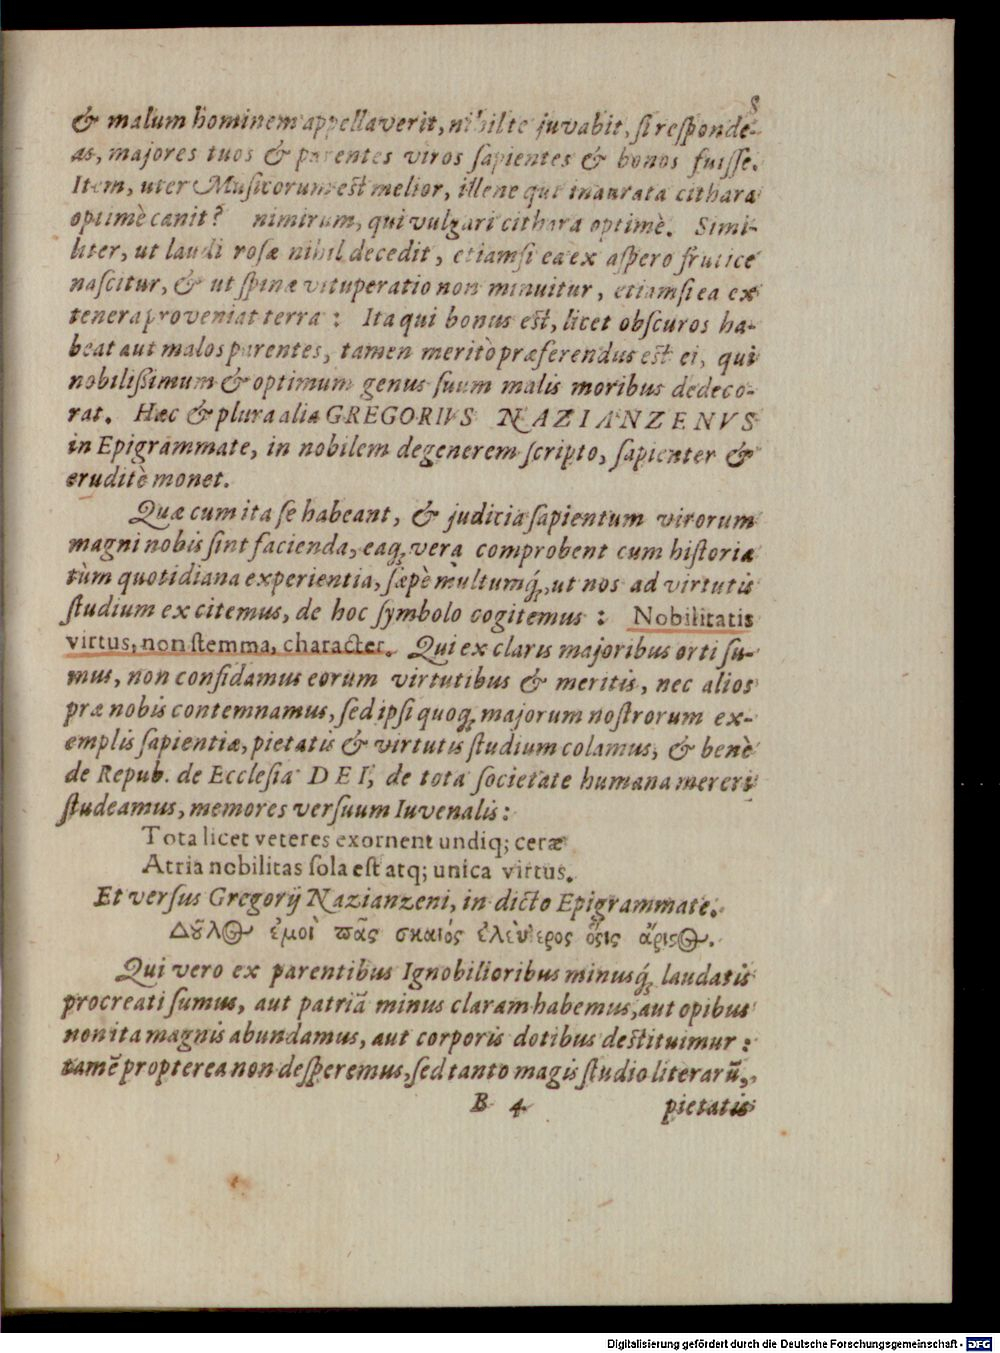 8
& malum hominem appellaverit, nihil te juvabit, si responde-
as, majores tuos & parentes viros sapientes & bonos fuisse.
Item, uter Musicorum est melior, illene qui inaurata cithara
optimè canit? nimirum, qui vulgari cithara optimè. Simi-
liter, ut laudi rosæ nihil decedit, etiamsi ea ex aspero frutice
nascitur, & ut spinæ vituperatio non minuitur, etiamsi ea ex
tenera proveniat terra: Ita qui bonus est, licet obscuros ha-
beat aut malos parentes, tamen meritò præferendus est ei, qui
nobilißimum & optimum genus suum malis moribus dedeco-
rat. Hæc & plura alia GREGORIVS NAZIANZENVS
in Epigrammate, in nobilem degenerem scripto, sapienter &
eruditè monet.
Quæ cum ita se habeant, & judicia sapientum virorum
magni nobis sint facienda, eaq; vera comprobent cum historiæ
tùm quotidiana experientia, sæpè multumq́;, ut nos ad virtutis
studium excitemus, de hoc symbolo cogitemus: Nobilitatis
virtus, non stemma, character. Qui ex claris majoribus orti su-
mus, non confidamus eorum virtutibus & meritis, nec alios
præ nobis contemnamus, sed ipsi quoq; majorum nostrorum ex-
emplis sapientiæ, pietatis & virtutis studium colamus, & benè
de Repub. de Ecclesia DEI, de tota societate humana mereri
studeamus, memores versuum Iuvenalis:
Tota licet veteres exornent undiq; ceræ
Atria nobilitas sola est atq; unica virtus.
Et versus Gregorij Nazianzeni, in dicto Epigrammate.
Δοῦλος ἐμοὶ πᾶς σκαιός ἐλεύθερος ὅστις ἄριστος.
Qui vero ex parentibus Ignobilioribus minusq́; laudatis
procreati sumus, aut patriã minus claram habemus, aut opibus
non ita magnis abundamus, aut corporis dotibus destituimur:
tamẽ propterea non desperemus, sed tanto magis studio literarũ,
B 4 pietatis
Digitalisierung gefördert durch die Deutsche Forschungsgemeinschaft - DFG